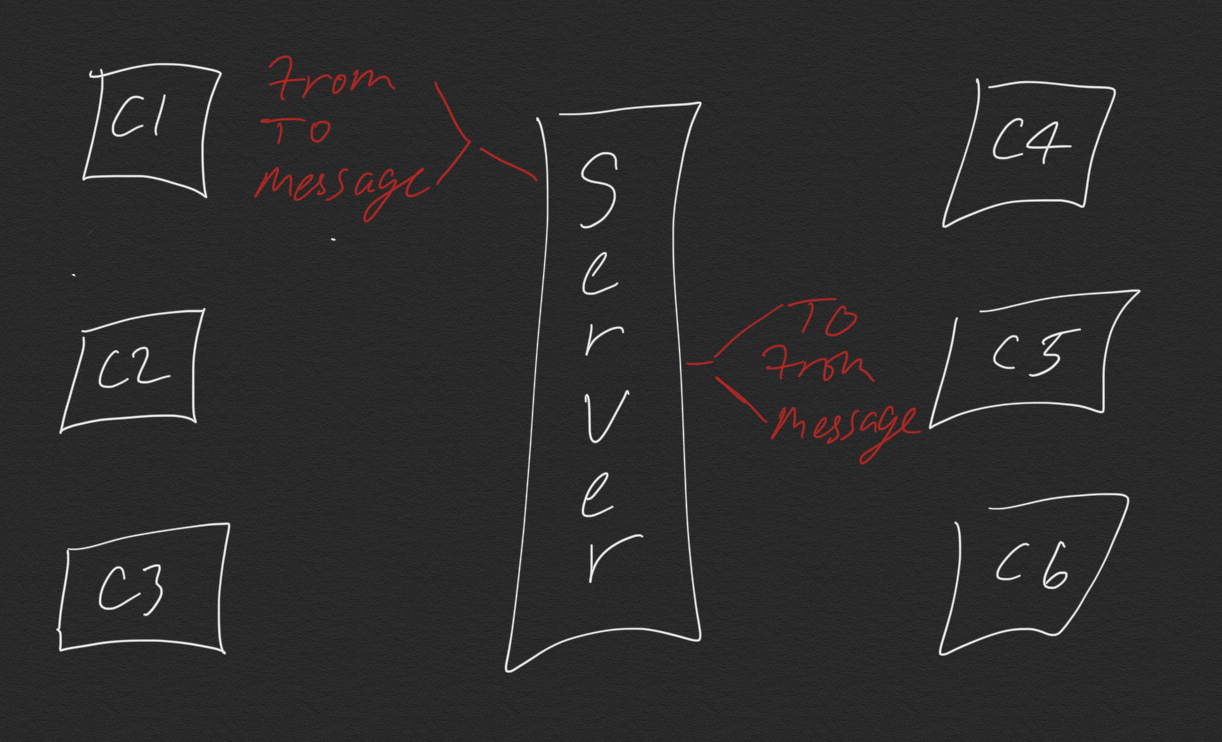 C1
From
TO
message
C2
C3
Server
TO
From
message
C4
C5
C6